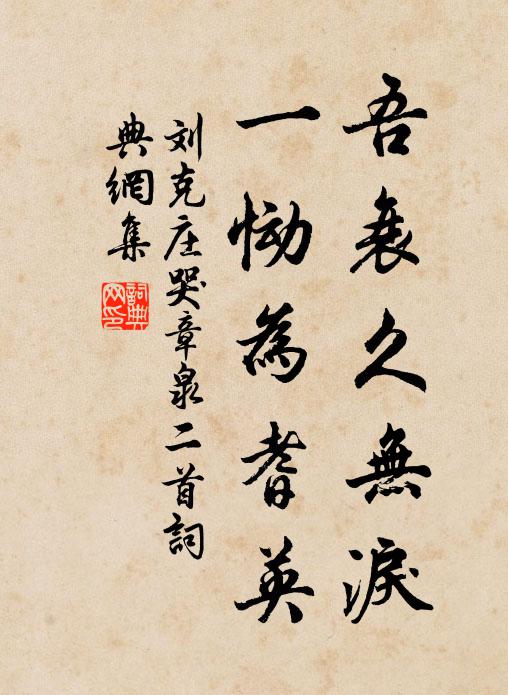 吾衰久無淚
一慟為耆英
刘克庄哭章泉二首詞
典網集
詞典網印